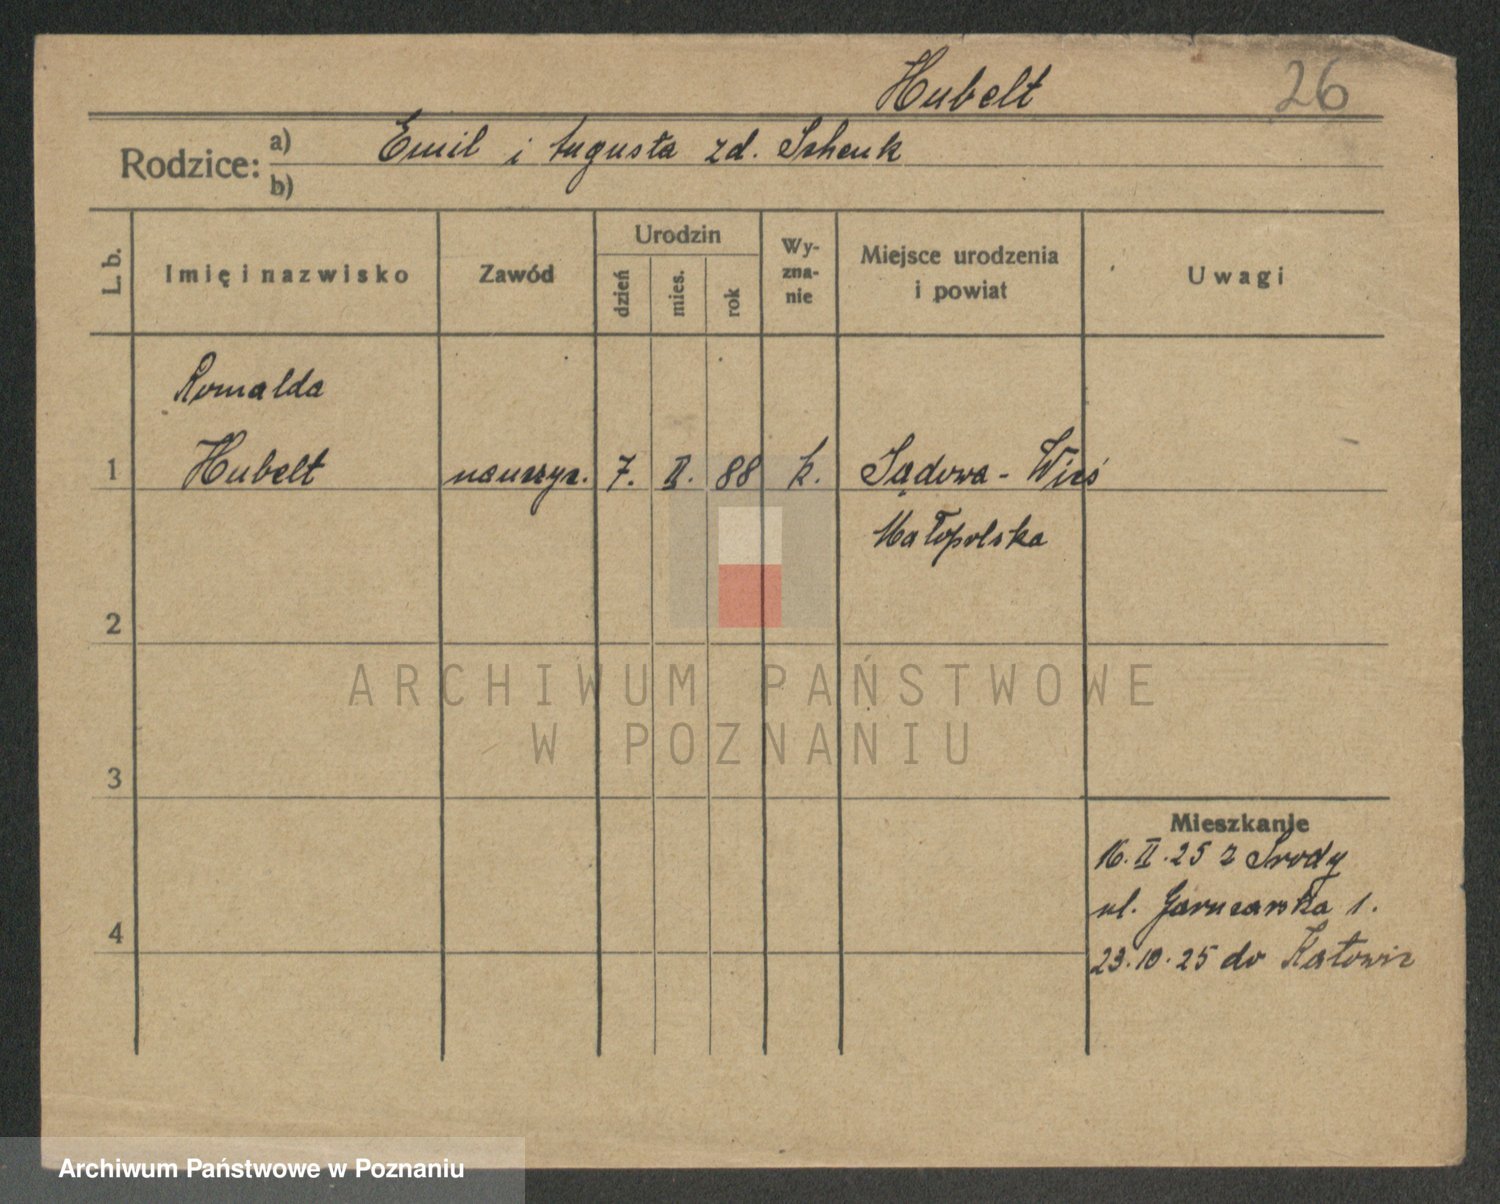 Hubelt 26
Rodzice: a) Emil i Augusta zd. Schenk
b)
L. b. Imię i nazwisko Zawód Urodzin dzień mies. rok Wy-zna-nie Miejsce urodzenia i powiat Uwagi
Romalda
1 Hubelt nauczyc. 7. II. 88 k. Sądowa-Wieś
Małopolska
2
ARCHIWUM PAŃSTWOWE
W POZNANIU
3
Mieszkanie
16. II. 25 z Środy
ul. Garncarska 1.
4
23.10.25 do Katowic
Archiwum Państwowe w Poznaniu